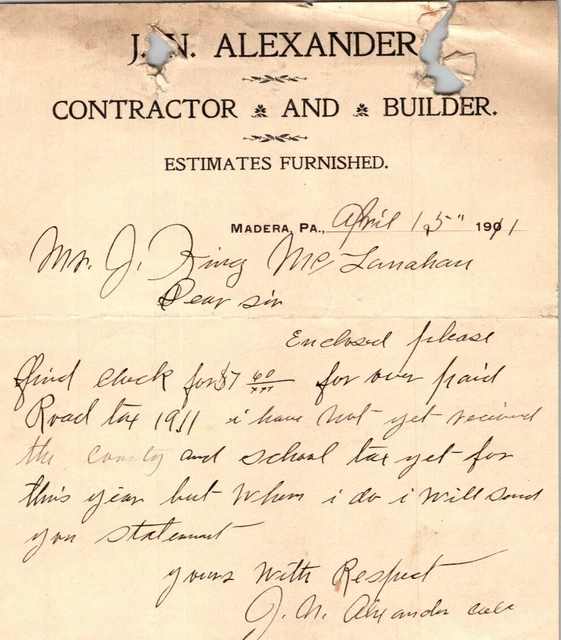 J. N. ALEXANDER
CONTRACTOR AND BUILDER.
ESTIMATES FURNISHED.
MADERA, PA., April 15" 1911
Mr. J. King McLanahan
Dear sir
Enclosed please
find check for $7 60/xxx for over paid
Road tax 1911 i have not yet received
the county and school tax yet for
this year but When i do i will send
you statement
yours With Respect
J. N. Alexander